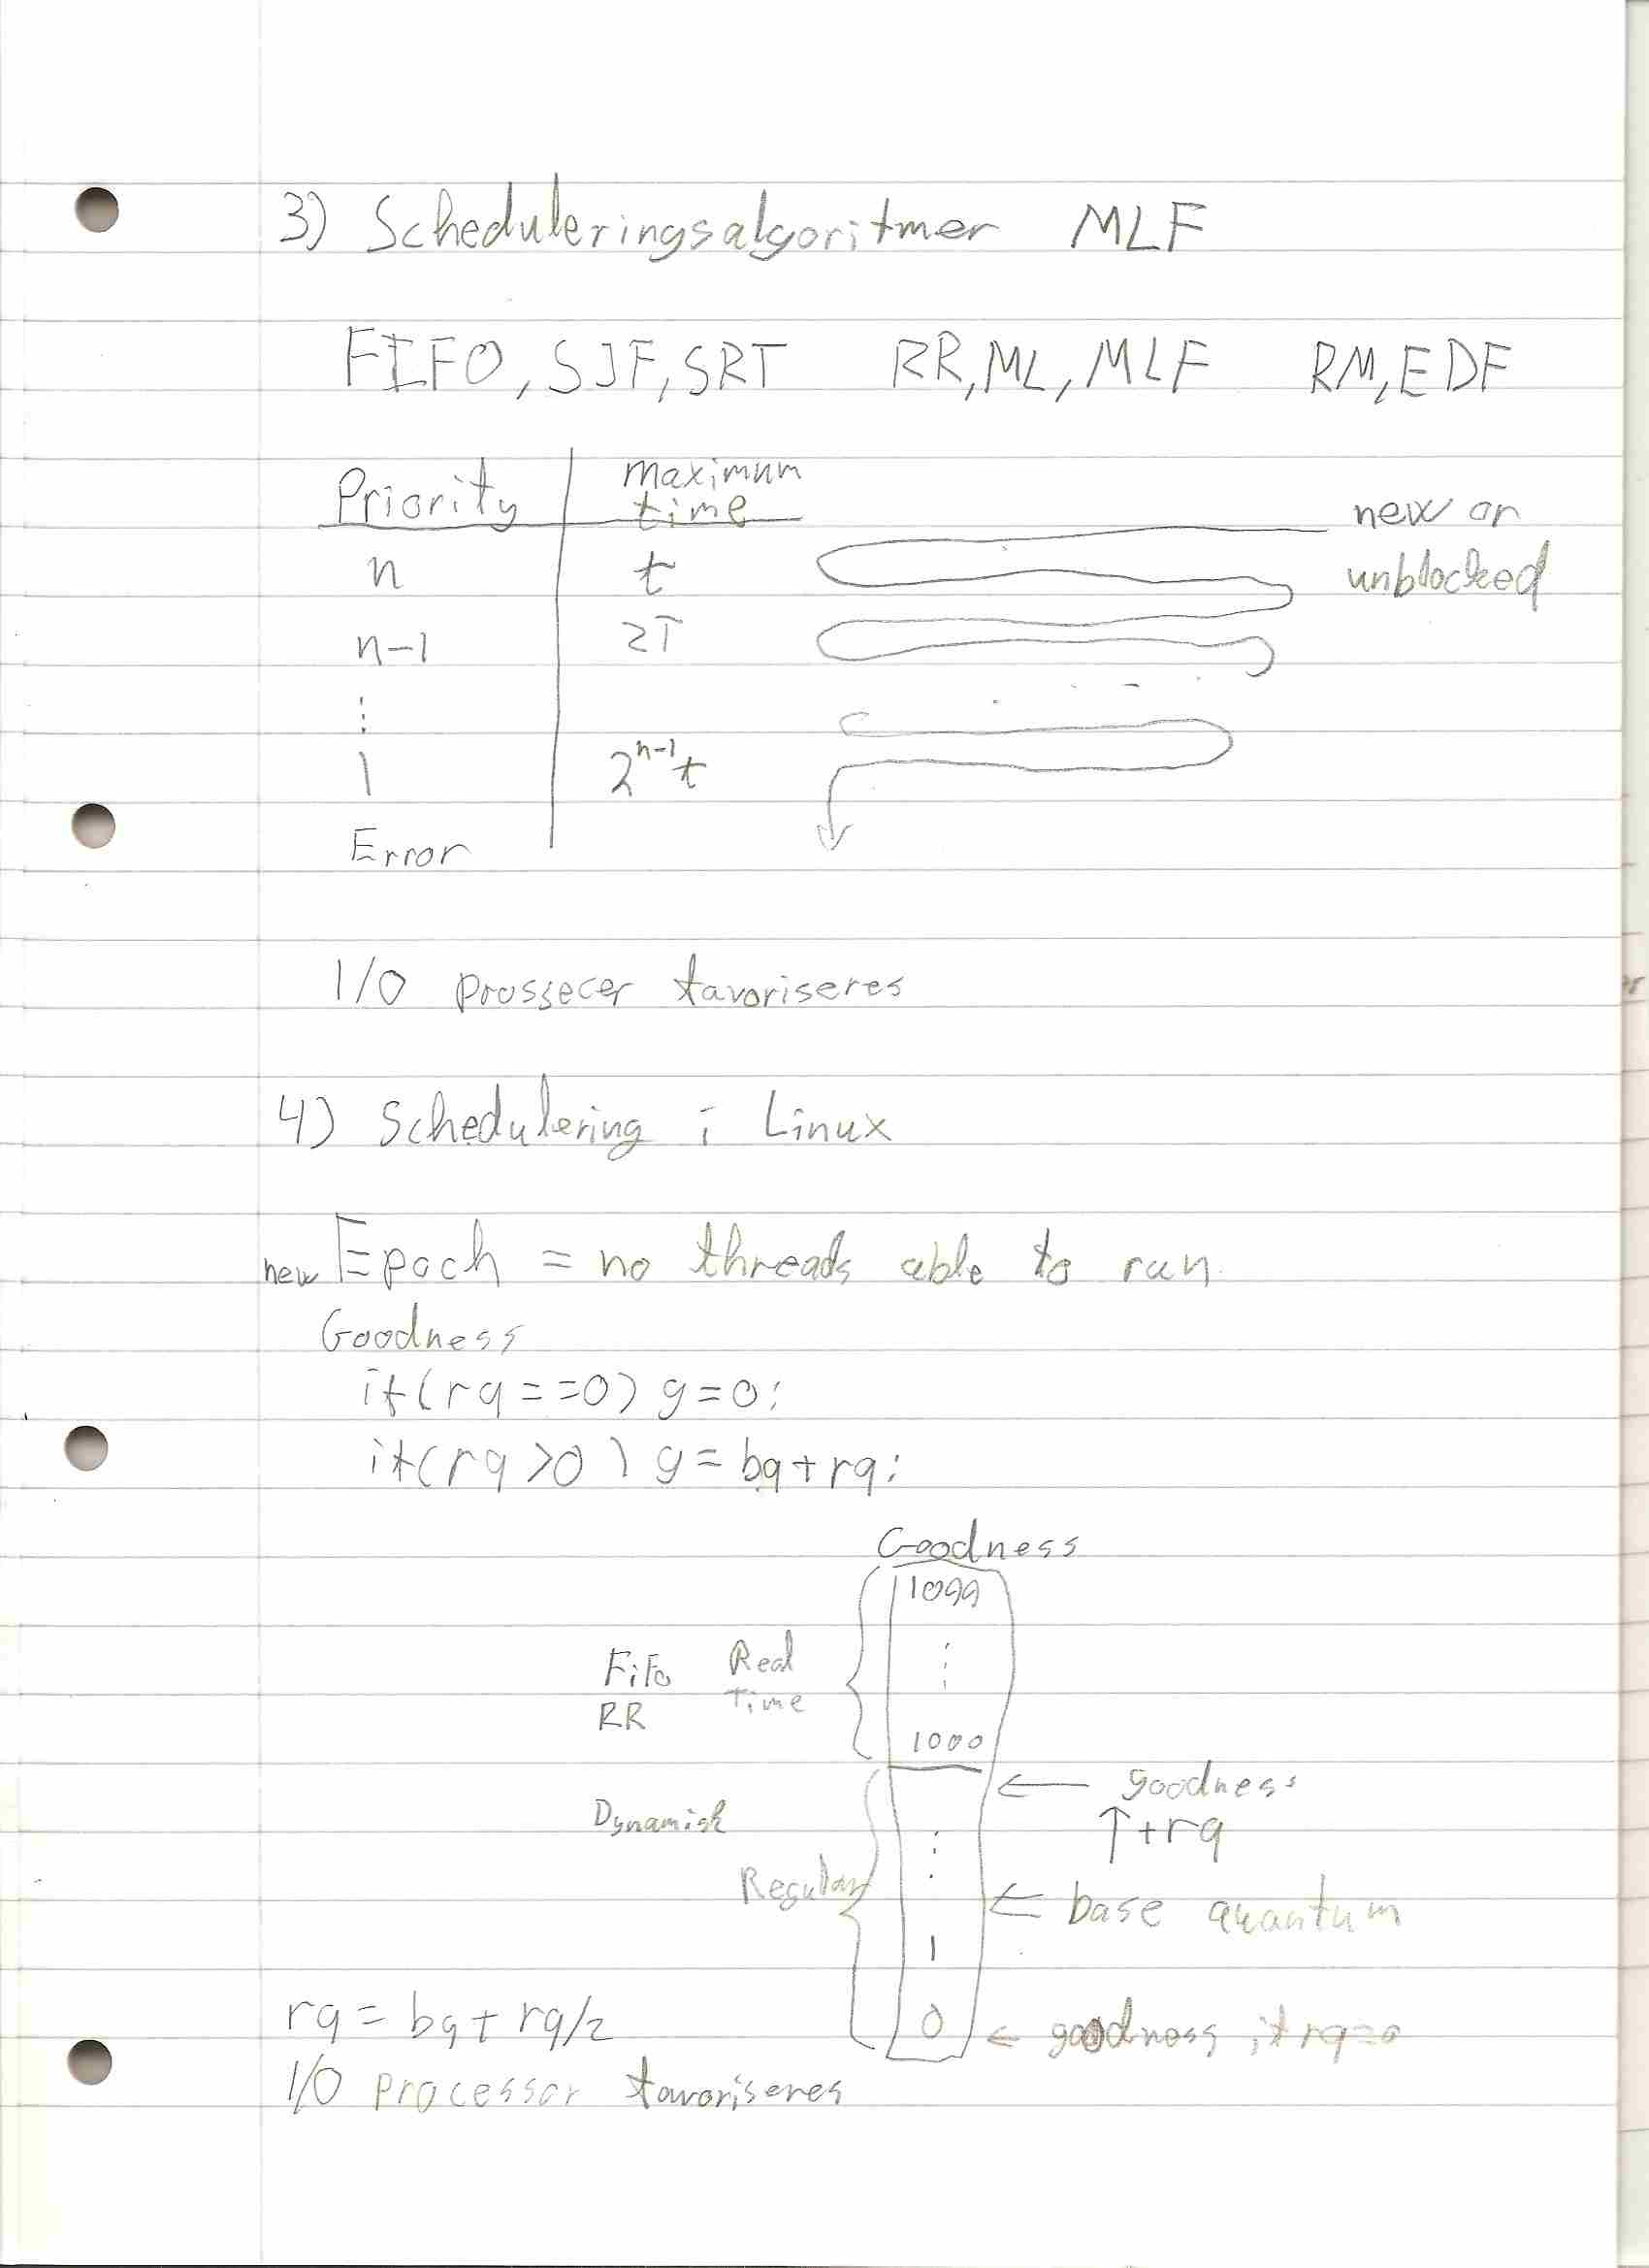 3) Scheduleringsalgoritmer MLF
FIFO, SJF, SRT RR, ML, MLF RM, EDF
Priority maximum time
new or unblocked
n t
n-1 2T
⋮
1 2^n-1 t
Error
I/O prossecer favoriseres
4) Schedulering i Linux
new Epoch = no threads able to run
Goodness
if(rq==0) g=0;
if(rq>0) g=bq+rq;
Goodness
1099
⋮
FiFo Real
RR Time
1000
← goodness
Dynamisk ↑+rq
⋮
Regular ← base quantum
1
rq = bq + rq/2
0 ← goodness if rq=0
I/O processor favoriseres